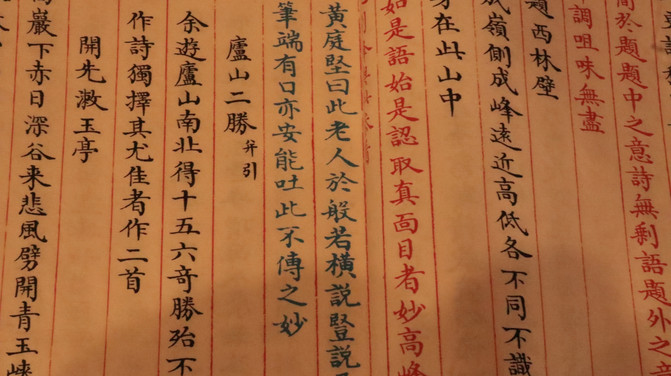 於題題中之意詩無剩語題外之
調咀味無盡
題西林壁
成嶺側成峰遠近高低各不同不識
身在此山中
如是語始是認取真面目者妙高峰
黃庭堅曰此老人於般若橫說豎說
筆端有口亦安能吐此不傳之妙
廬山二勝 并引
余遊廬山南北得十五六奇勝殆不
作詩獨擇其尤佳者作二首
開先漱玉亭
高巖下赤日深谷来悲風劈開青玉峽